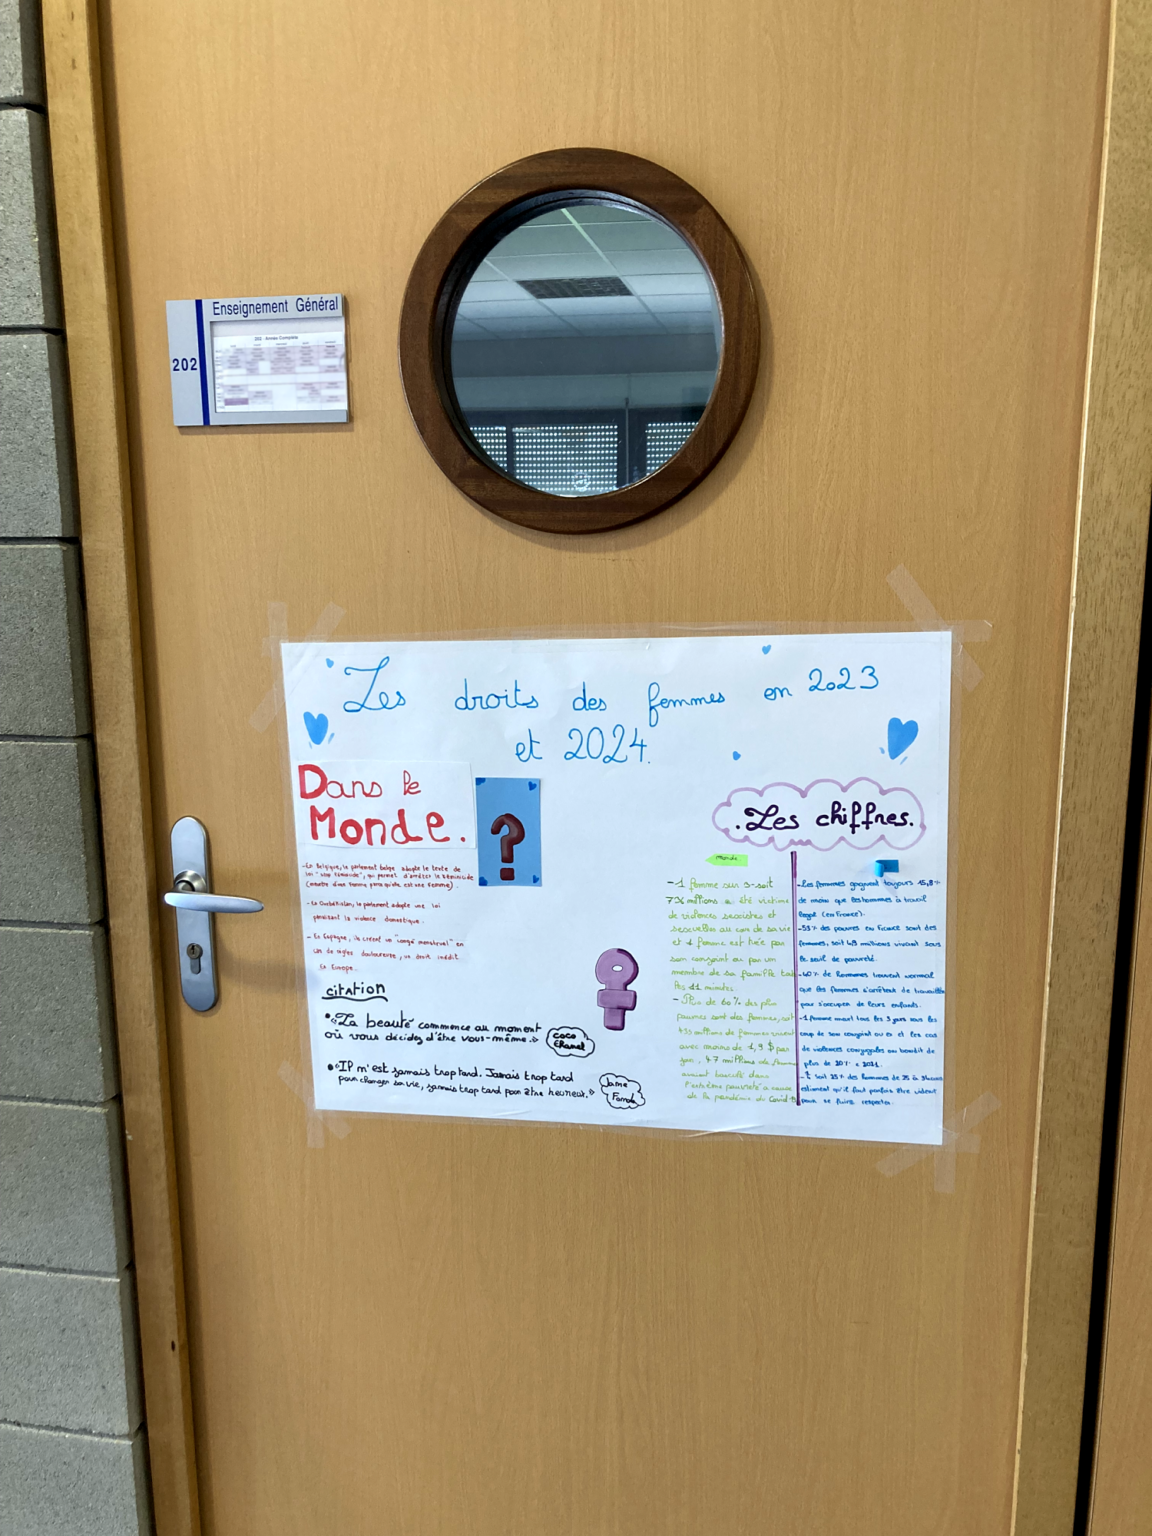 Enseignement Général
202
202 - Année Complète
Les droits des femmes en 2023
et 2024.
Dans le
Monde.
?
- En Belgique, le parlement belge adopte le texte de
loi "stop féminicide", qui permet d'arrêter le féminicide
(meurtre d'une femme parce qu'elle est une femme).
- En Ouzbékistan, le parlement adopte une loi
la violence domestique.
- En Espagne, ils créent un "congé menstruel" en
cas de règles douloureuse, un droit inédit
En Europe.
citation
• "La beauté commence au moment
où vous décidez d'être vous-même."
coco
Chanel
• "Il n'est jamais trop tard. Jamais trop tard
pour changer sa vie, jamais trop tard pour être heureux."
Jane
Fonda
.Les chiffres.
monde
- 1 femme sur 3 soit
736 millions a été victime
de violences sexistes et
sexuelles au cour de sa vie
et 1 femme est tuée par
son conjoint ou par un
membre de sa famille tout
les 11 minutes.
- Plus de 60% des plus
pauvres sont des femmes, soit
435 millions de femmes vivent
avec moins de 1,9 $ par
jour. 47 millions de femmes
auraient basculé dans
l'extrême pauvreté a cause
de la pandémie du Covid-19
- Les femmes gagnent toujours 15,8%
de moin que les hommes à travail
légal (en France).
- 53% des pauvres en France sont des
femmes, soit 4,9 millions vivant sous
le seuil de pauvreté.
- 40% de hommes trouvent normal
que les femmes s'arrêtent de travailler
pour s'occuper de leurs enfants.
- 1 femme meurt tous les 3 jours sous les
coup de son conjoint ou ex et les cas
de violences conjugales on bondit de
plus de 20% en 2021.
soit 23% des hommes de 25 à 34ans
estiment qu'il faut parfois être violent
pour se faire respecter.